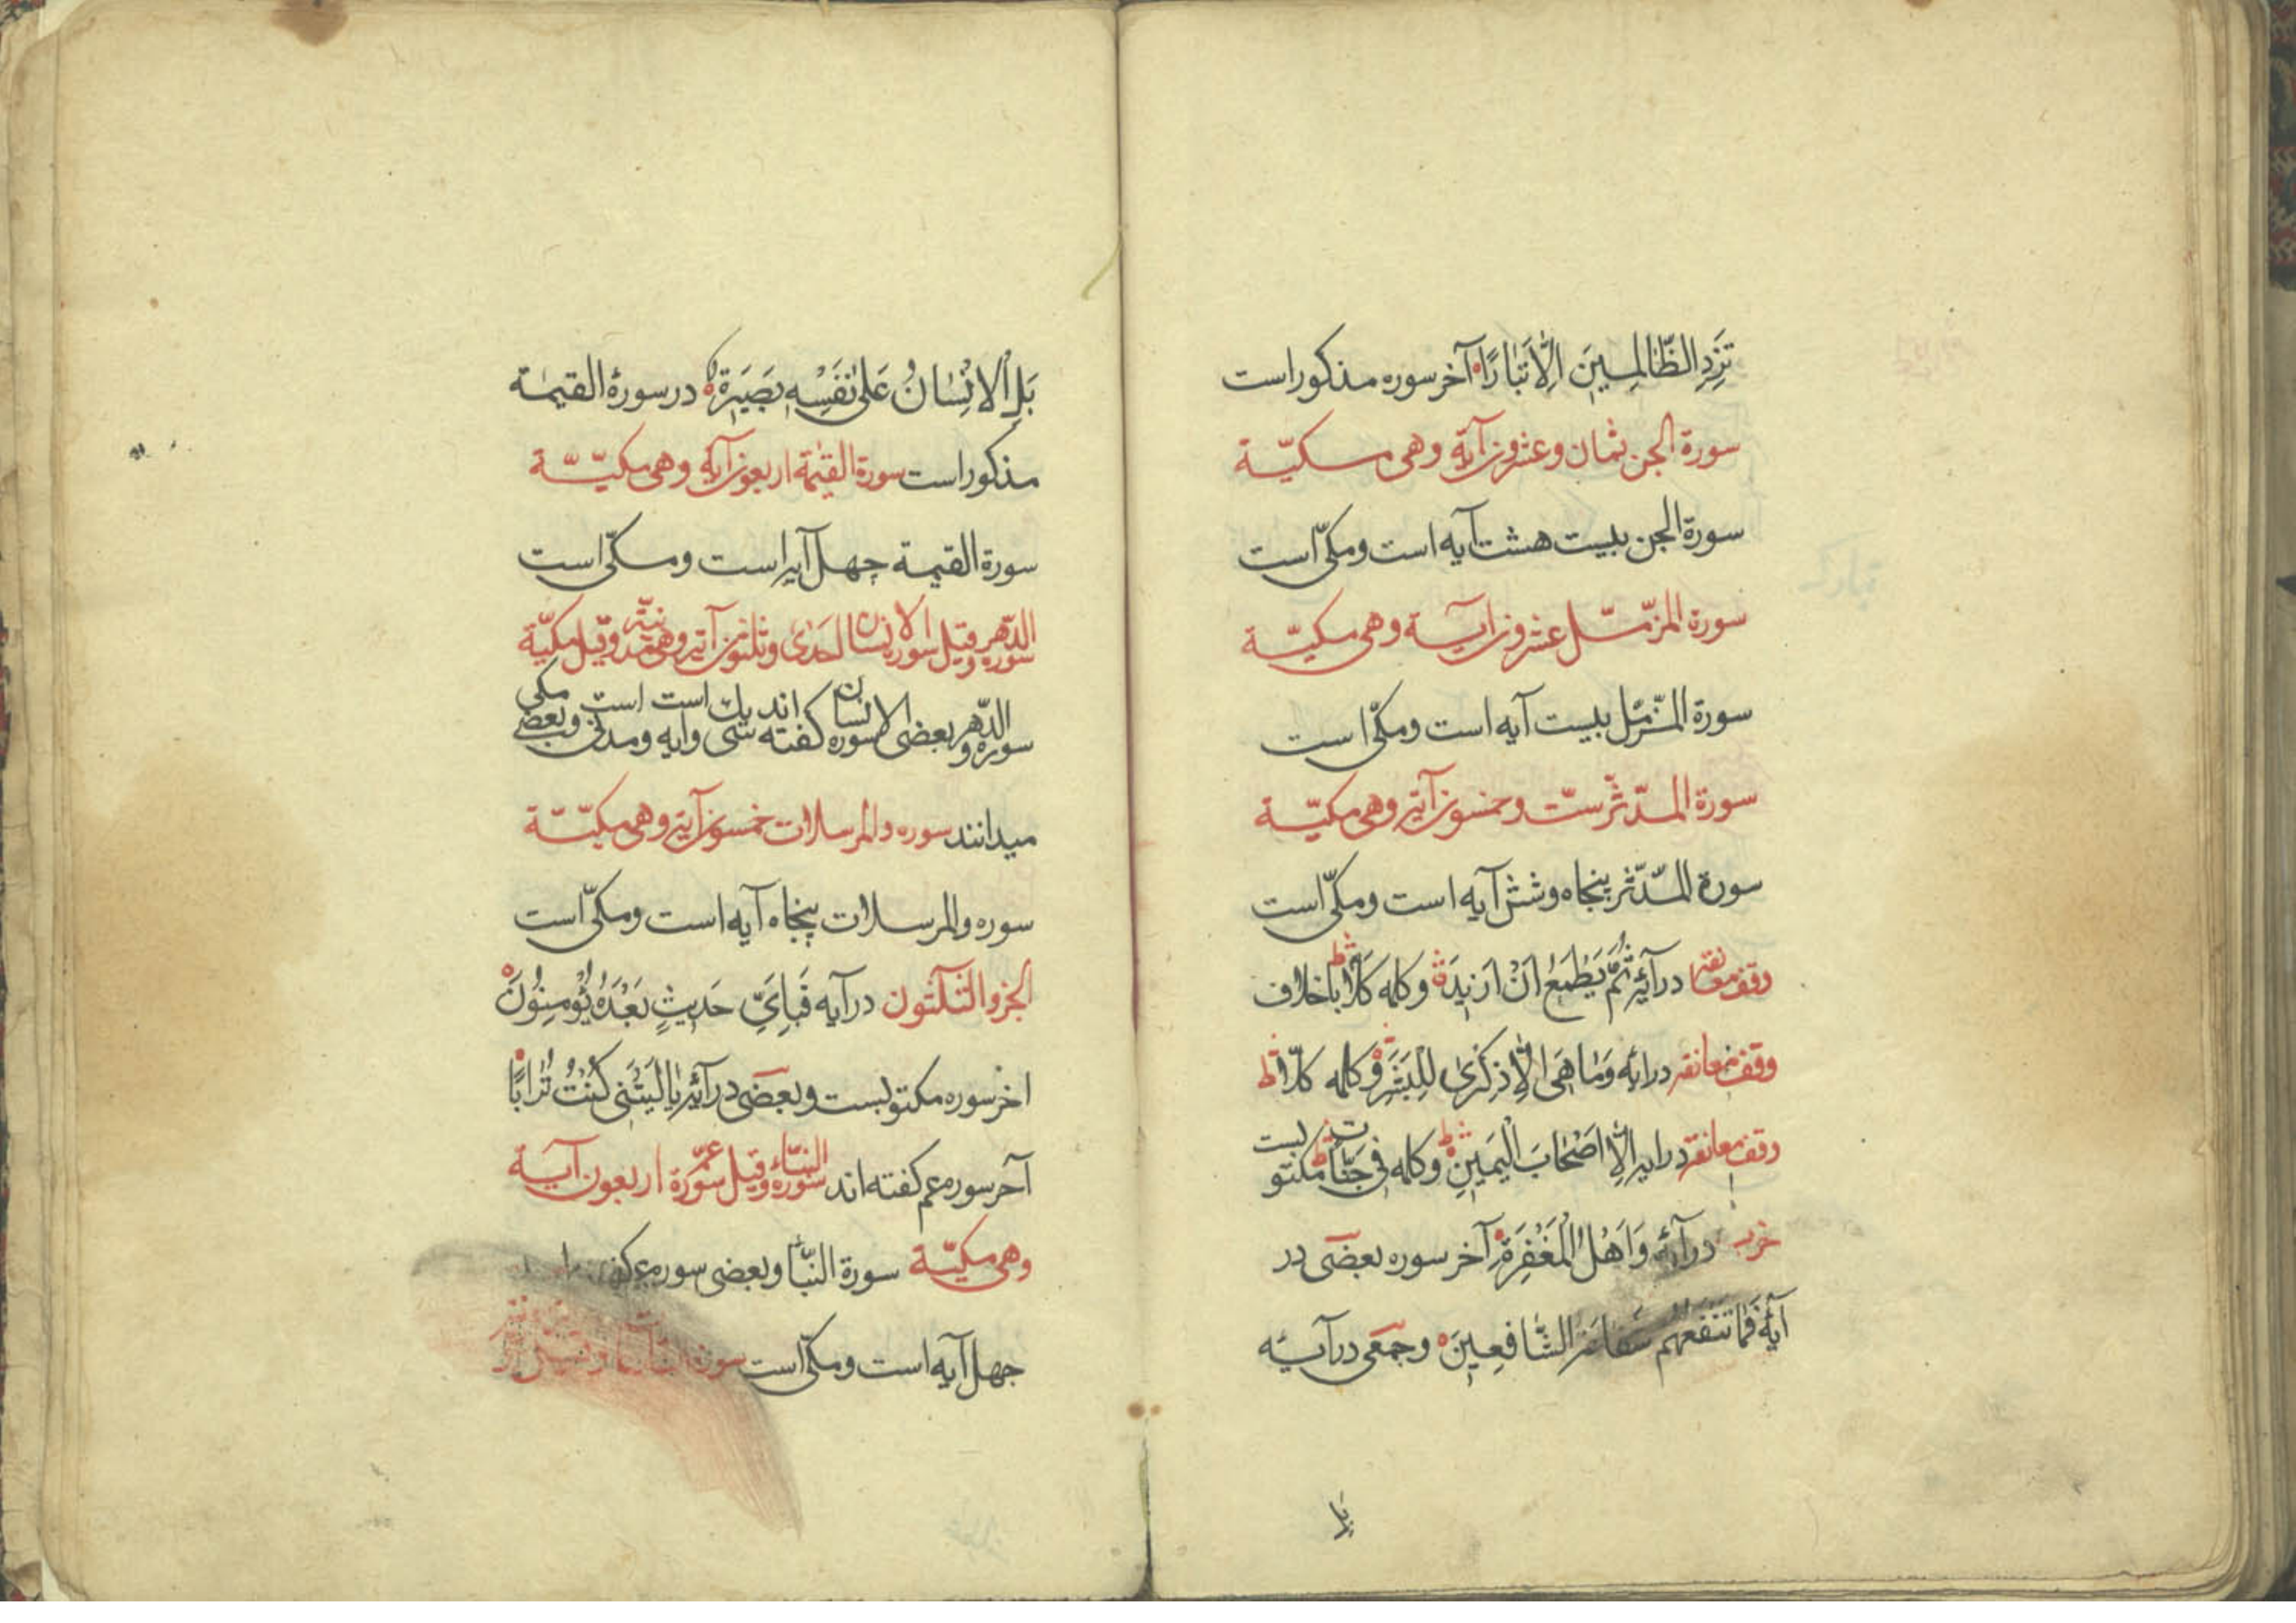 تَزِدِ الظَّالِمِينَ اِلَّا تَبَارًا آخر سوره مذکور است
سورة الجن ثمان وعشرون آية وهی مکیّة
سورة الجن بیست هشت آیه است ومکّی است
سورة المزّمّل عشرون آیة وهی مکیّة
سورة المزّمّل بیست آیه است ومکّی است
سورة المدّثّر ستّ وخمسون آیة وهی مکیّة
سورة المدّثّر پنجاه وشش آیه است ومکّی است
وقف معانقه در آیۀ ثُمَّ يَطْمَعُ اَنْ اَزِيدَ وکلمه كَلَّا باخلاف
وقف معانقه در ایه وَمَا هِيَ اِلَّا ذِكْرٰى لِلْبَشَرِ وکلمه كلّا
وقف معانقه در ایه اِلَّا اَصْحَابَ الْيَمِينِ وکلمه فِي جَنَّات مکتوبست
در آیۀ وَاَهْلُ الْمَغْفِرَةِ آخر سوره بعضی در
آیۀ فَمَا تَنْفَعُهُمْ شَفَاعَةُ الشَّافِعِينَ وجمعی در آیۀ
بَلِ الْاِنْسَانُ عَلٰى نَفْسِهِ بَصِيرَةٌ در سورۀ القیمة
مذکور است سورة القیمة اربعون آیة وهی مکیّة
سورة القیمة چهل آیه است ومکّی است
سورة الدّهر وقیل سورة الانسان احدی وثلثون آیة وهی مدنیّة وقیل مکیّة
سوره والدّهر وبعضی سوره الانسان گفته اند سی ویك آیه است ومدنی است وبعضی مکی
میدانند سوره والمرسلات خمسون آیة وهی مکیّة
سوره والمرسلات پنجاه آیه است ومکّی است
الجزو الثلثون در آیه فَبِاَيِّ حَدِيثٍ بَعْدَهُ يُؤْمِنُونَ
اخر سوره مکتوبست وبعضی در آیۀ يَا لَيْتَنِي كُنْتُ تُرَابًا
آخر سوره عم گفته اند سورة النبأ وقیل سورة عمّ اربعون آیة
وهی مکیّة سورة النبأ وبعضی سوره عم
چهل آیه است ومکّی است سورة
با